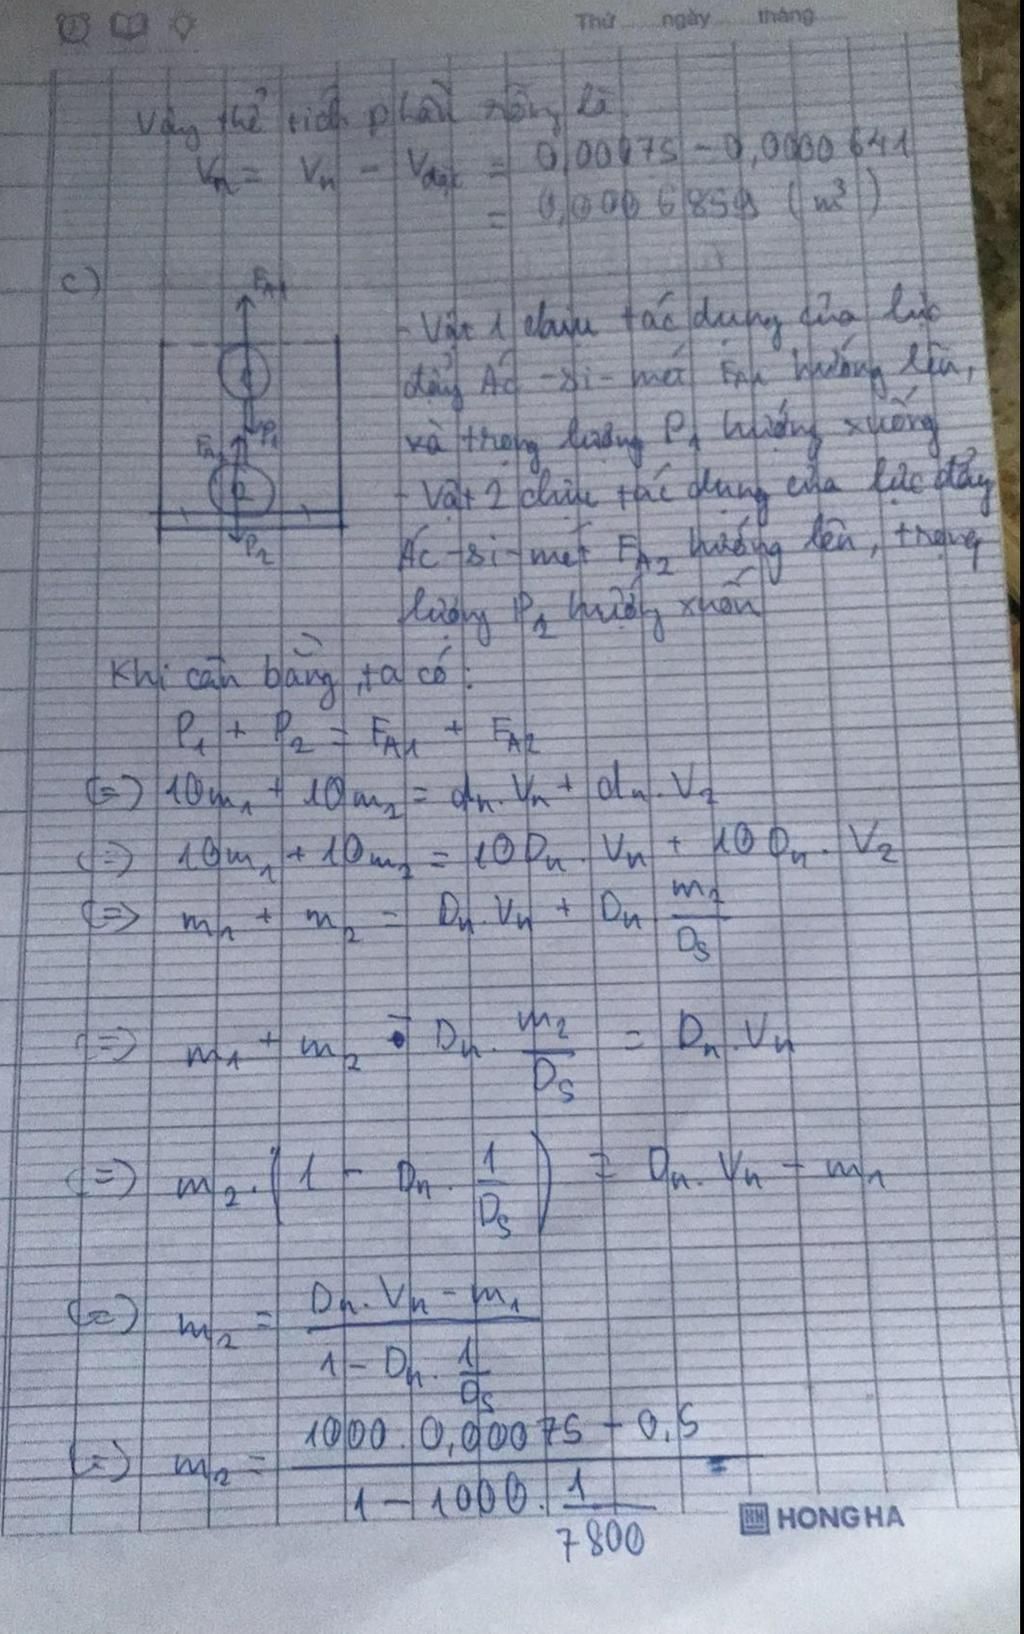 Thứ ngày tháng
Vậy thể tích phần rỗng là
Vr = Vn - Vđặc = 0,00075 - 0,0000641
= 0,0006859 (m³)
c)
FA1
P1
FA2
2
P2
- Vật 1 chịu tác dụng của lực
đẩy Ác-si-mét FA1 hướng lên,
và trọng lượng P1 hướng xuống
- Vật 2 chịu tác dụng của lực đẩy
Ác-si-mét FA2 hướng lên, trọng
lượng P2 hướng xuốn
Khi cân bằng, ta có:
P1 + P2 = FA1 + FA2
(=) 10m1 + 10m2 = dn.Vn + dn.V2
(=) 10m1 + 10m2 = 10Dn.Vn + 10Dn.V2
(=) m1 + m2 = Dn.Vn + Dn m2/Ds
(=) m1 + m2 - Dn.m2/Ds = Dn.Vn
(=) m2.(1 - Dn.1/Ds) = Dn.Vn - m1
(=) m2 = Dn.Vn - m1 / 1 - Dn.1/Ds
(=) m2 = 1000.0,00075 - 0,5 / 1 - 1000.1/7800 =
HH HONG HA